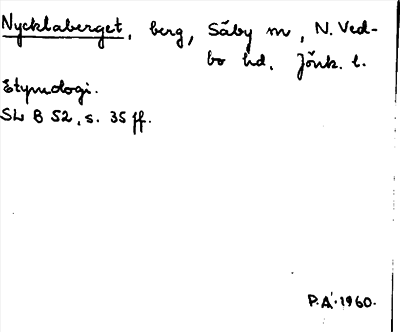 Nycklaberget, berg, Säby m, N. Ved-
bo hd. Jönk. l.
Etymologi.
SL B 52, s. 35 ff.
P.Å. 1960.